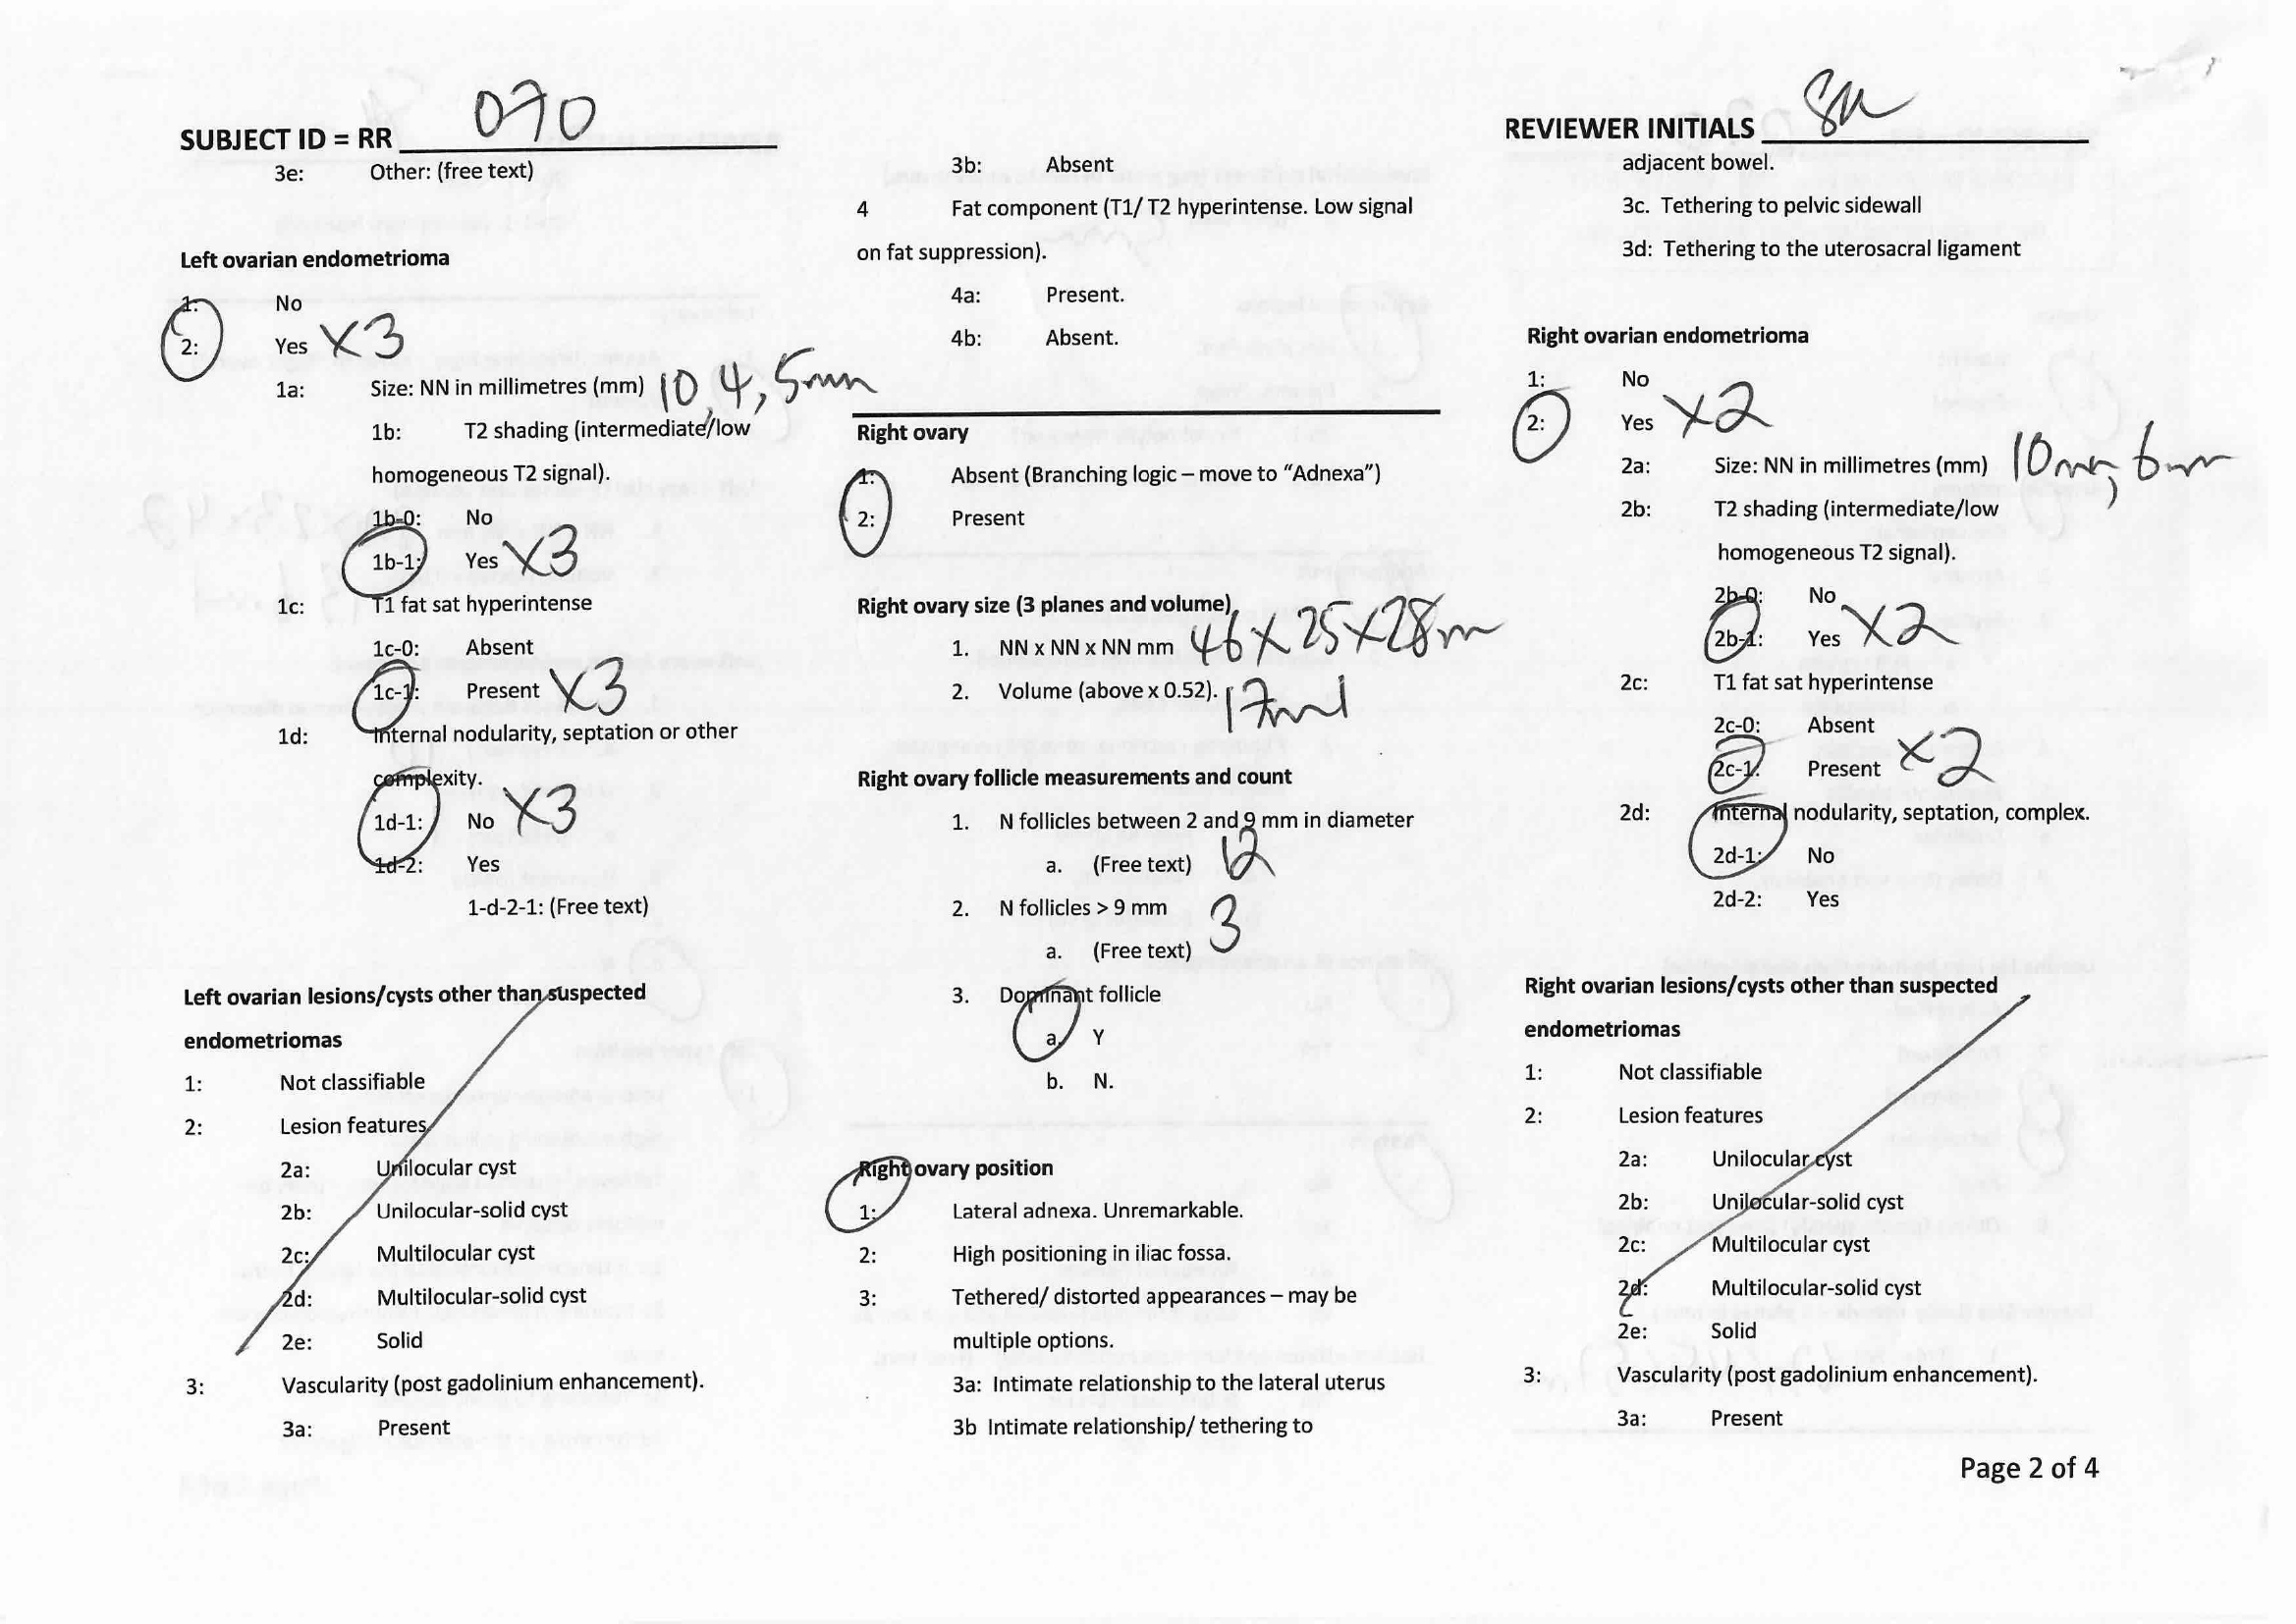 SUBJECT ID = RR 070
3e: Other: (free text)
Left ovarian endometrioma
1: No
2: Yes X3
1a: Size: NN in millimetres (mm) 10, 4, 5mm
1b: T2 shading (intermediate/low
homogeneous T2 signal).
1b-0: No
1b-1: Yes X3
1c: T1 fat sat hyperintense
1c-0: Absent
1c-1: Present X3
1d: Internal nodularity, septation or other
complexity.
1d-1: No X3
1d-2: Yes
1-d-2-1: (Free text)
Left ovarian lesions/cysts other than suspected
endometriomas
1: Not classifiable
2: Lesion features
2a: Unilocular cyst
2b: Unilocular-solid cyst
2c: Multilocular cyst
2d: Multilocular-solid cyst
2e: Solid
3: Vascularity (post gadolinium enhancement).
3a: Present
3b: Absent
4 Fat component (T1/ T2 hyperintense. Low signal
on fat suppression).
4a: Present.
4b: Absent.
Right ovary
1: Absent (Branching logic – move to “Adnexa”)
2: Present
Right ovary size (3 planes and volume)
1. NN x NN x NN mm 46 X 25 X 28m
2. Volume (above x 0.52). 17ml
Right ovary follicle measurements and count
1. N follicles between 2 and 9 mm in diameter
a. (Free text) 12
2. N follicles > 9 mm
a. (Free text) 3
3. Dominant follicle
a. Y
b. N.
Right ovary position
1: Lateral adnexa. Unremarkable.
2: High positioning in iliac fossa.
3: Tethered/ distorted appearances – may be
multiple options.
3a: Intimate relationship to the lateral uterus
3b Intimate relationship/ tethering to
REVIEWER INITIALS
adjacent bowel.
3c. Tethering to pelvic sidewall
3d: Tethering to the uterosacral ligament
Right ovarian endometrioma
1: No
2: Yes X2
2a: Size: NN in millimetres (mm) 10mm, 6mm
2b: T2 shading (intermediate/low
homogeneous T2 signal).
2b-0: No
2b-1: Yes X2
2c: T1 fat sat hyperintense
2c-0: Absent
2c-1: Present X2
2d: Internal nodularity, septation, complex.
2d-1: No
2d-2: Yes
Right ovarian lesions/cysts other than suspected
endometriomas
1: Not classifiable
2: Lesion features
2a: Unilocular cyst
2b: Unilocular-solid cyst
2c: Multilocular cyst
2d: Multilocular-solid cyst
2e: Solid
3: Vascularity (post gadolinium enhancement).
3a: Present
Page 2 of 4